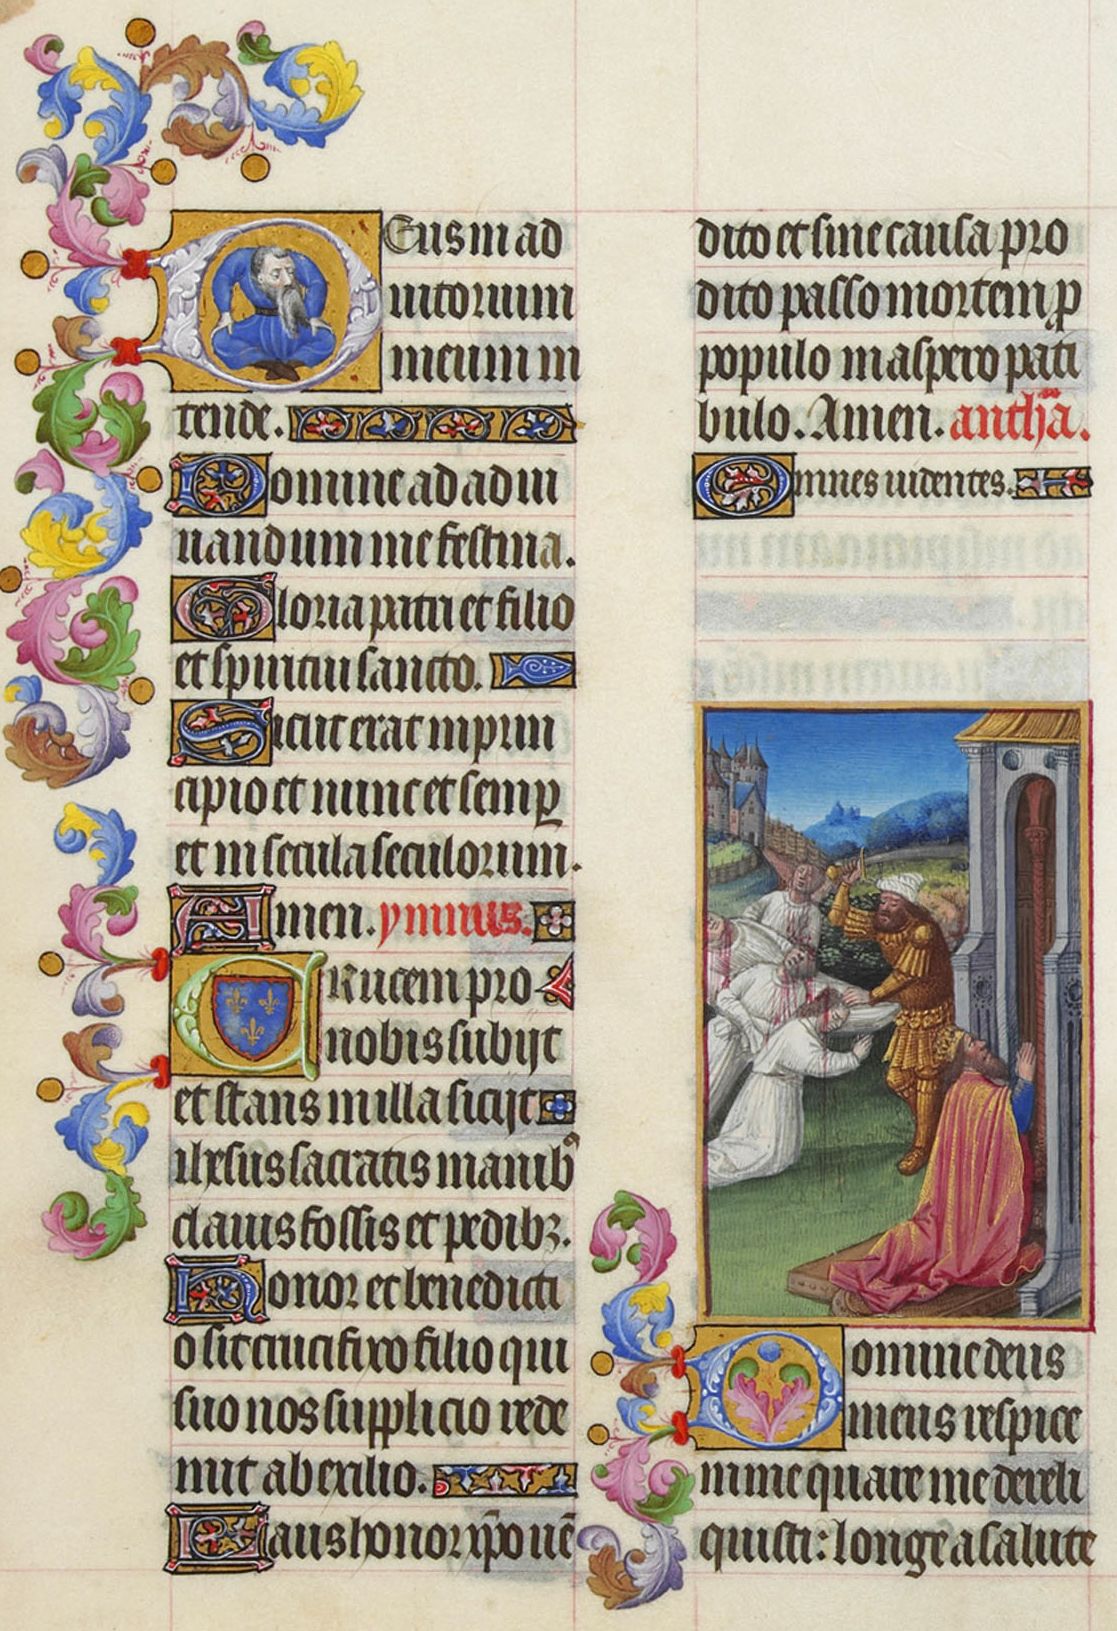 Deus in ad
iutorium
meum in
tende.
Domine ad adiu
uandum me festina.
Gloria patri et filio
et spiritui sancto.
Sicut erat in prin
cipio et nunc et semp̲
et in secula seculorum.
Amen. ymnus.
Crucem pro
nobis subijt
et stans in illa sicijt
ihesus sacratis manibꝯ
clauis fossis et pedibꝫ.
Honor et benedicti
o sit crucifixo filio qui
suo nos supplicio rede
mit ab exilio.
Laus honor xp̄o uē
dito et sine causa pro
dito passo mortem ꝑ
populo in aspero pati
bulo. Amen. anth̄a.
Omnes uidentes.
Domine deus
meus respice
in me quare me dereli
quisti: longe a salute